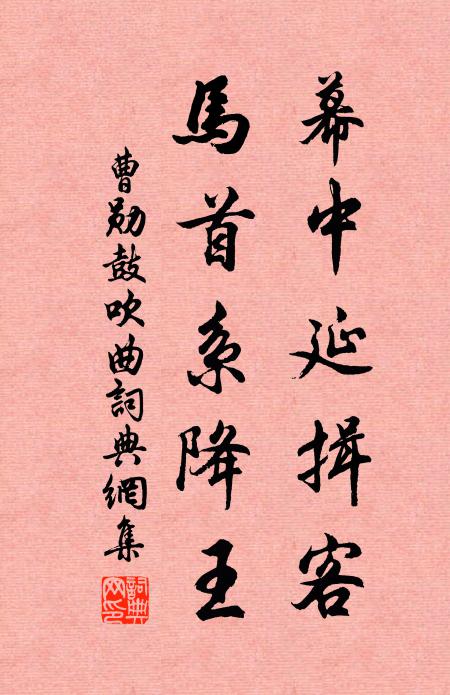 幕中延揖客
馬首系降王
曹勛鼓吹曲詞典網集
詞典网印